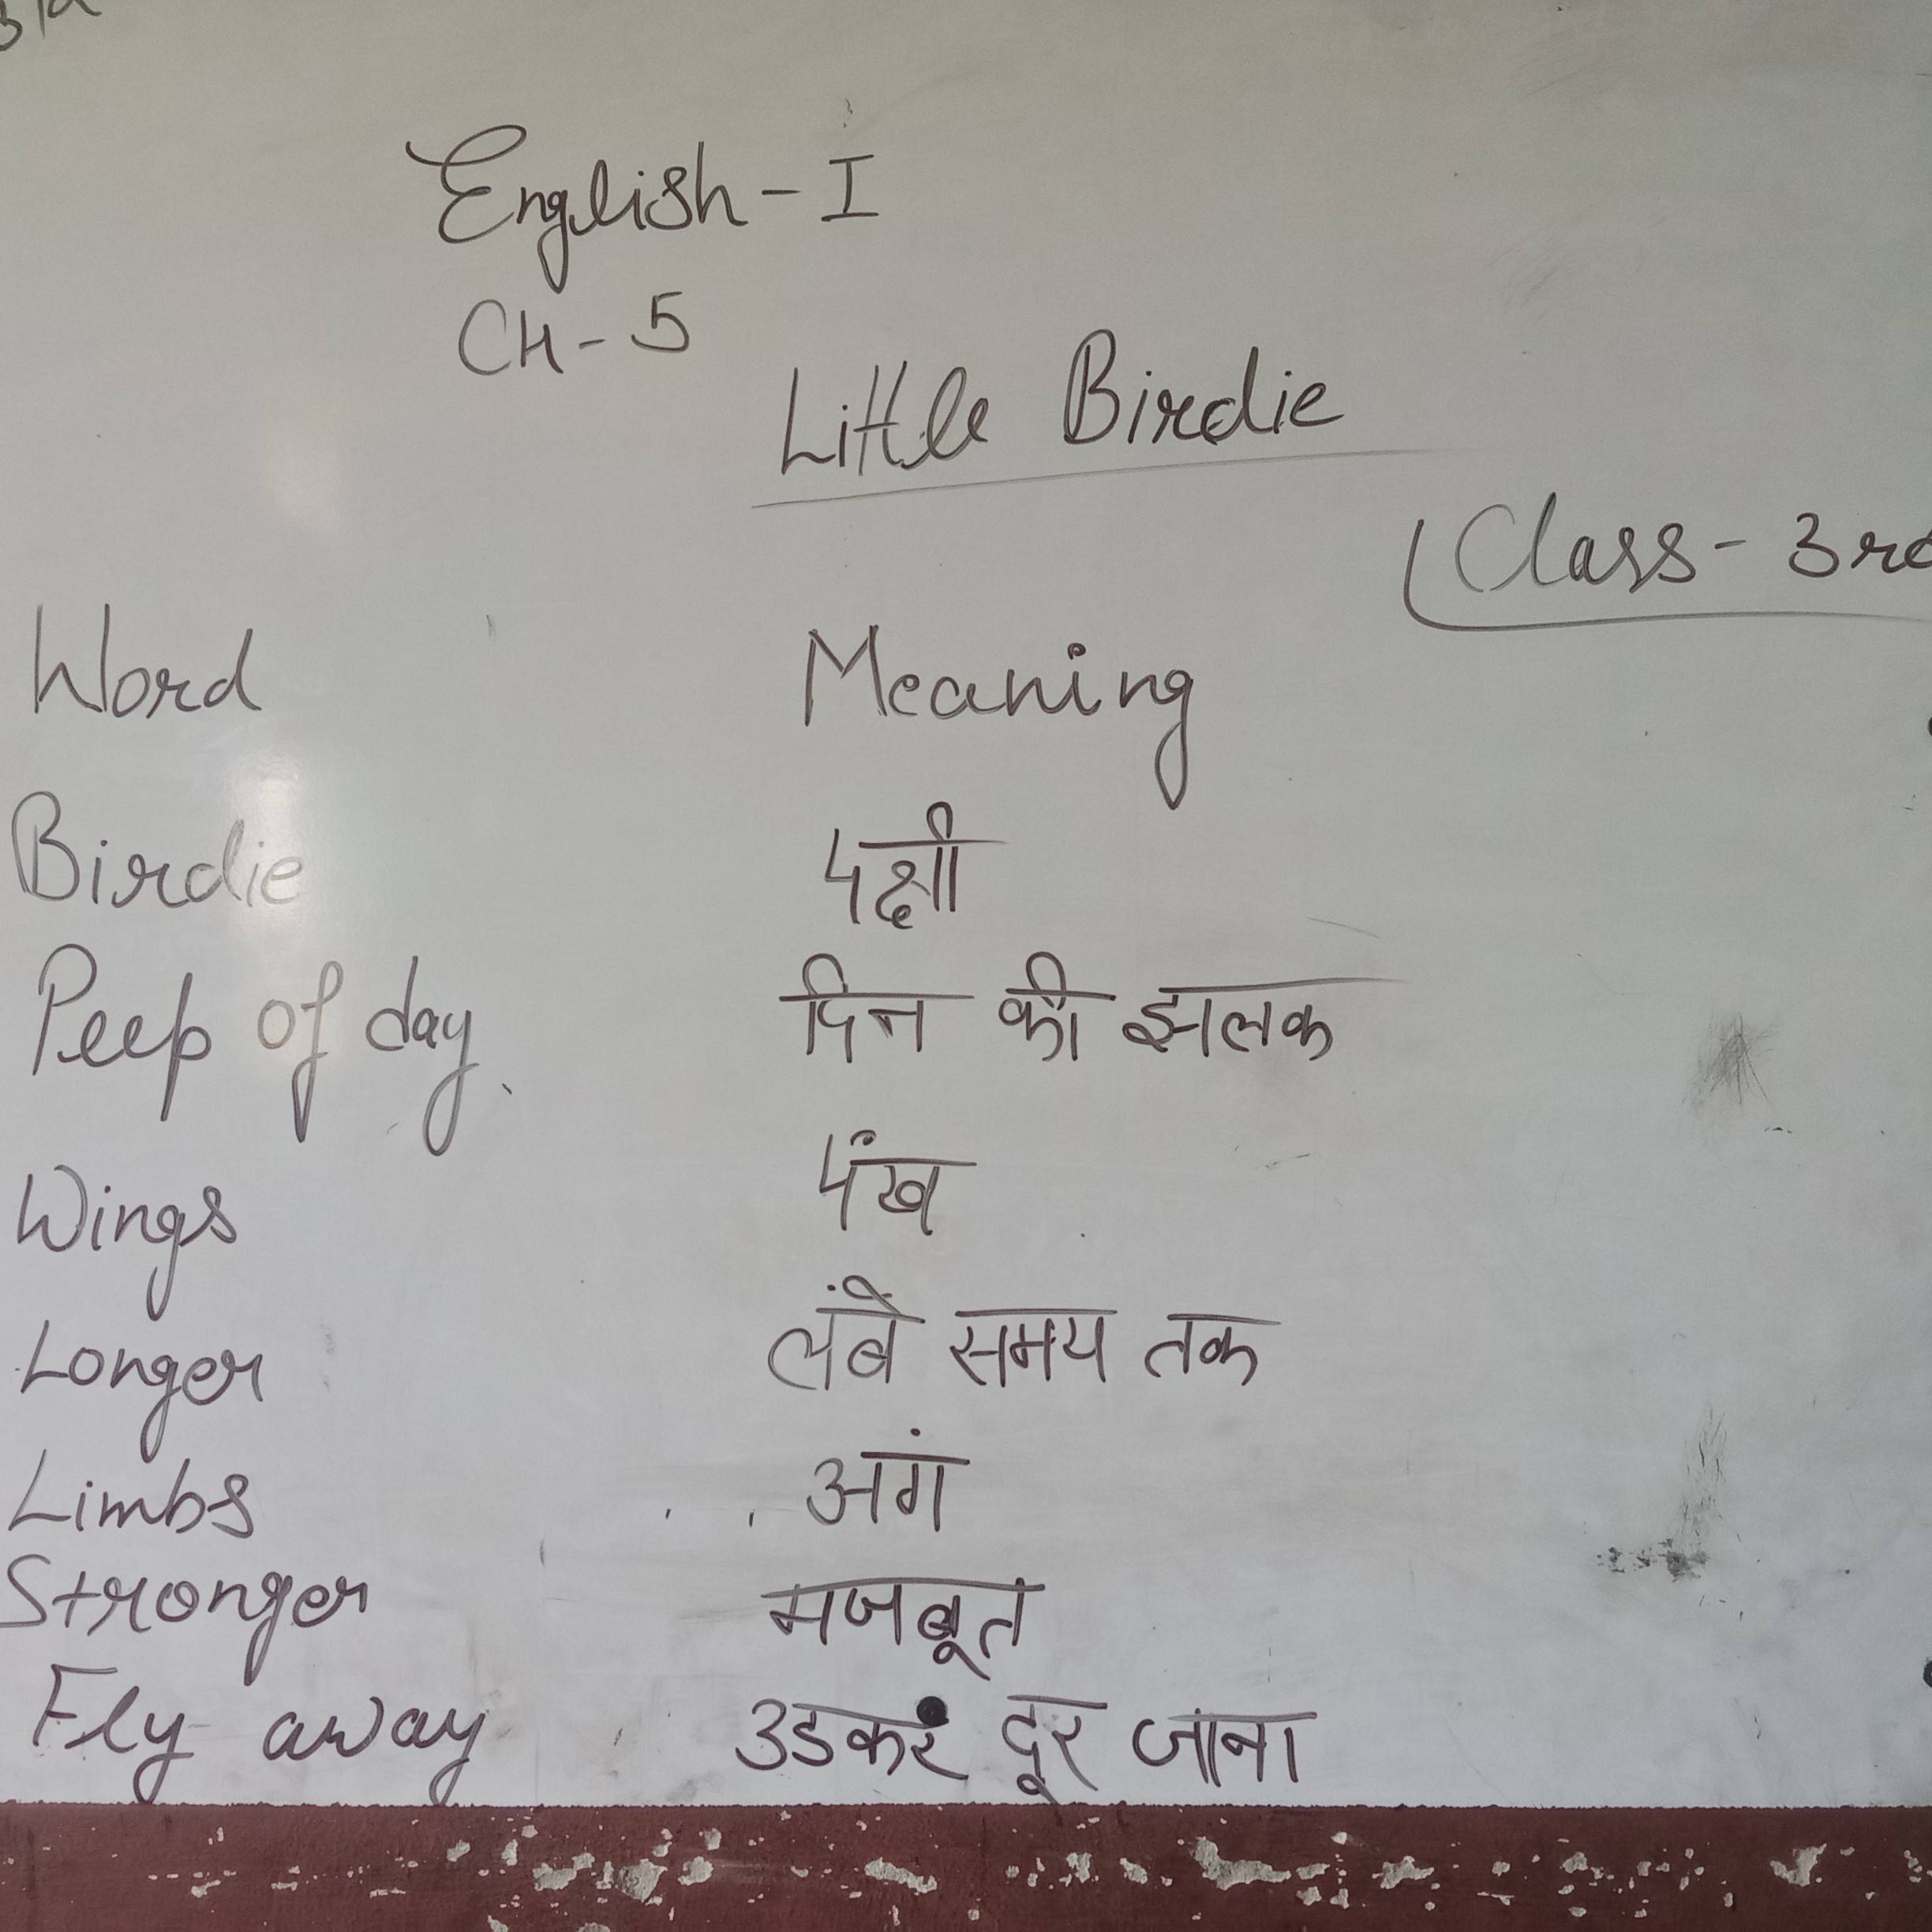 English - I
CH - 5
Little Birdie
Class - 3rd
Word Meaning
Birdie पक्षी
Peep of day दिन की झलक
Wings पंख
Longer लंबे समय तक
Limbs अंग
Stronger मजबूत
Fly away उडकर दूर जाना